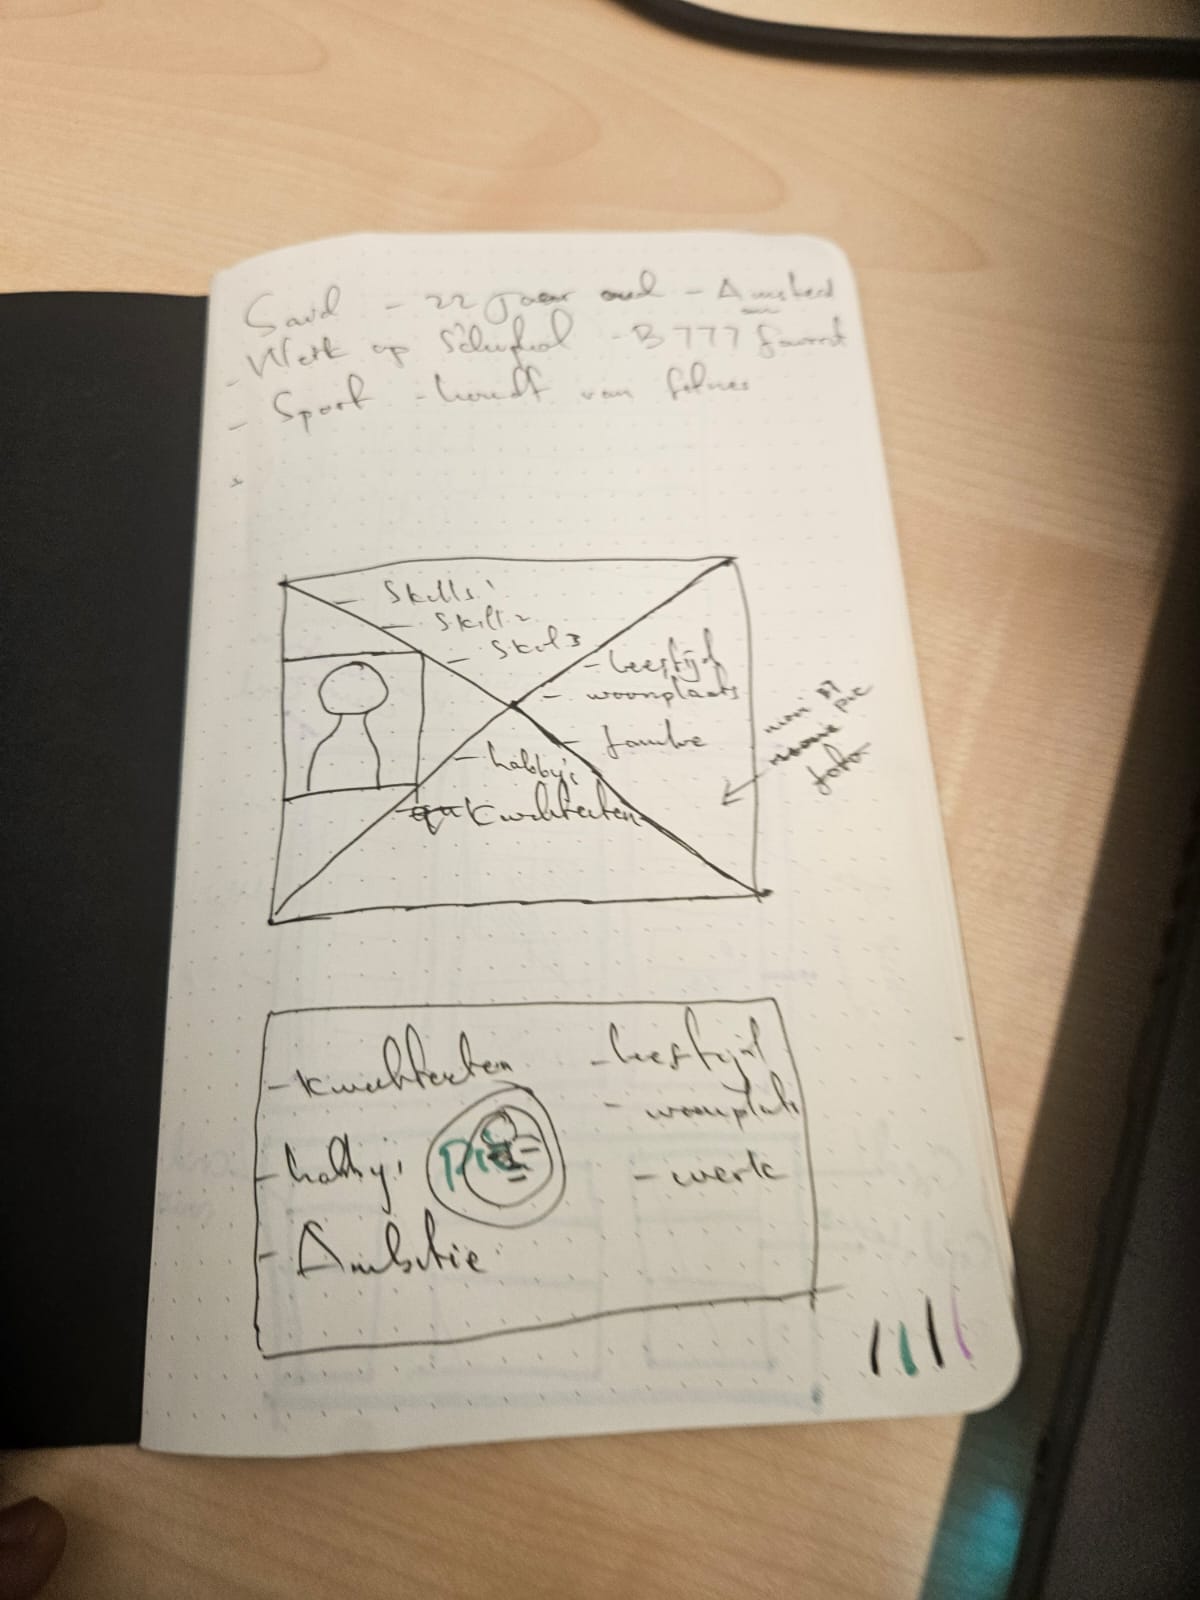 Said - 22 Jaar oud -
- Werk op Schiphol - B777 favoriet
- Sport - houdt van fitnes
- Skills 1
- Skill 2
- Skill 3
- leeftijd
- woonplaats
- familie
- hobby's
- Kwaliteiten
foto
- Kwaliteiten
- hobby's
- Ambitie
pic
- leeftijd
- woonplaats
- werk